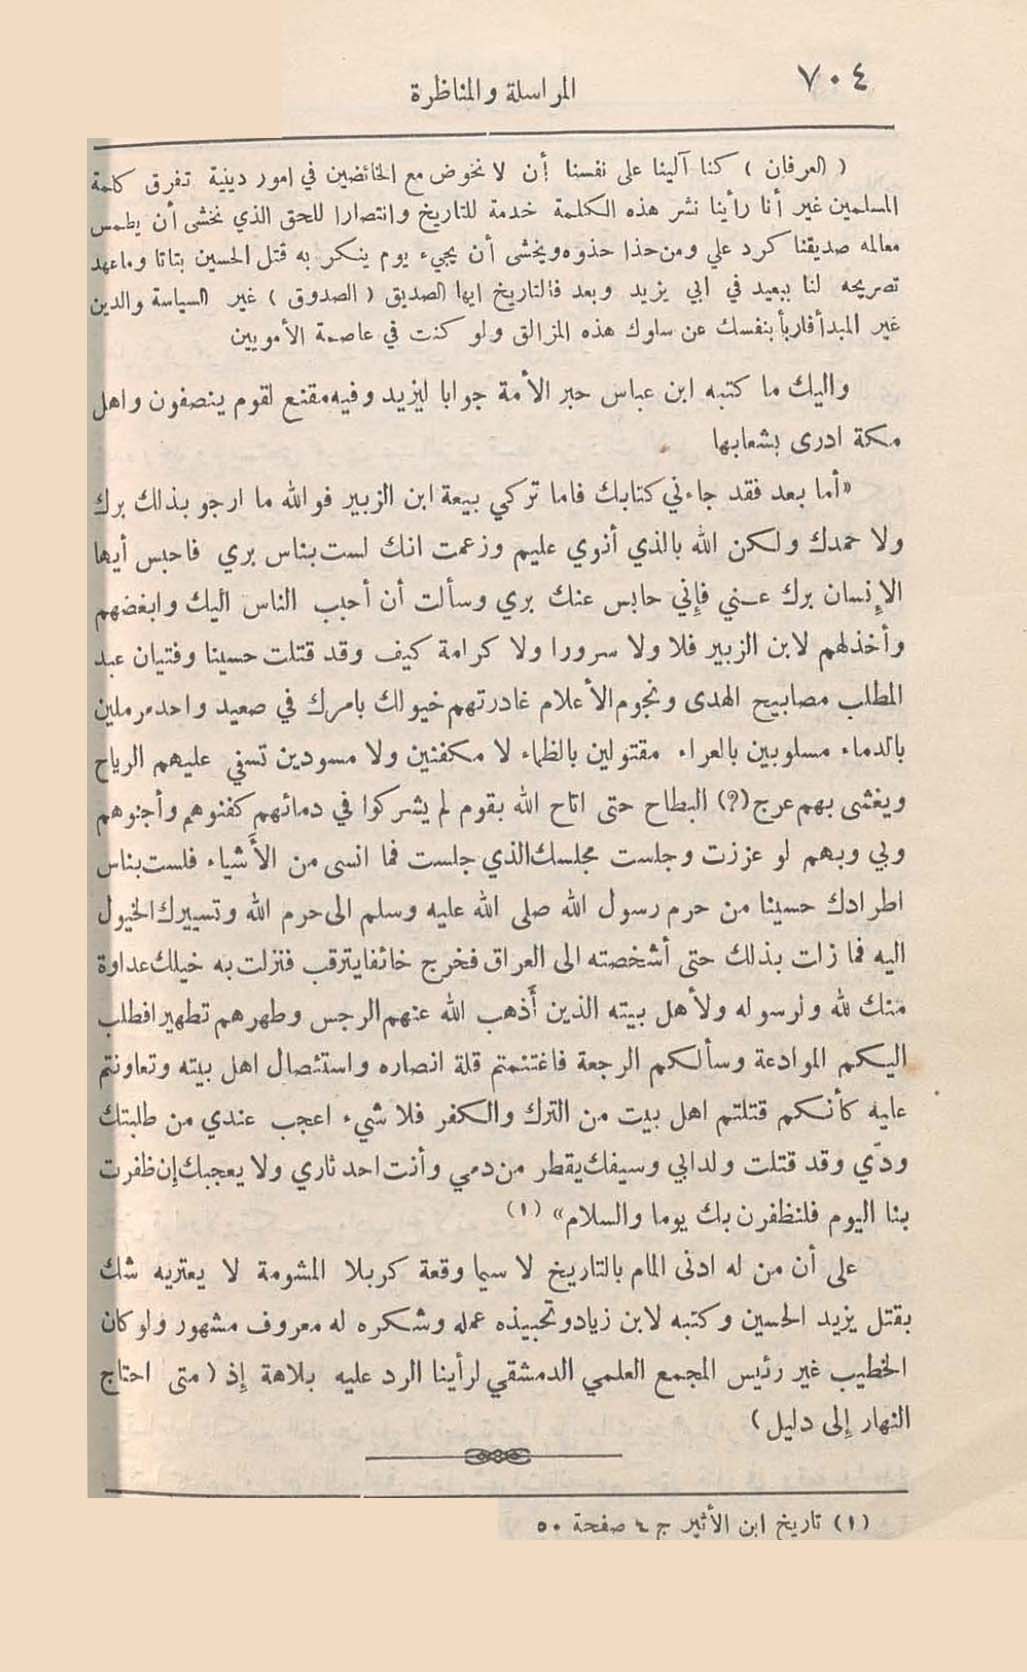 ٧٠٤
المراسلة والمناظرة
( العرفان ) كنا آلينا على نفسنا أن لا نخوض مع الخائضين في امور دينية تفرق كلمة
المسلمين غير أنا رأينا نشر هذه الكلمة خدمة للتاريخ وانتصارا للحق الذي نخشى أن يطمس
معالمه صديقنا كرد علي ومن حذا حذوه ويخشى أن يجيء يوم ينكر به قتل الحسين بتاتا وما عهد
تصريحه لنا ببعيد في ابي يزيد وبعد فالتاريخ ايها الصديق ( الصدوق ) غير السياسة والدين
غير المبدأ فاربأ بنفسك عن سلوك هذه المزالق ولو كنت في عاصمة الأمويين
واليك ما كتبه ابن عباس حبر الأمة جوابا ليزيد وفيه مقنع لقوم ينصفون واهل
مكة ادرى بشعابها
«أما بعد فقد جاءني كتابك فاما تركي بيعة ابن الزبير فوالله ما ارجو بذلك برك
ولا حمدك ولكن الله بالذي أنوي عليم وزعمت انك لست بناس بري فاحبس أيها
الإنسان برك عني فإني حابس عنك بري وسألت أن أحبب الناس اليك وابغضهم
وأخذلهم لابن الزبير فلا ولا سرورا ولا كرامة كيف وقد قتلت حسينا وفتيان عبد
المطلب مصابيح الهدى ونجوم الأعلام غادرتهم خيولك بامرك في صعيد واحد مرملين
بالدماء مسلوبين بالعراء مقتولين بالظماء لا مكفنين ولا مسودين تسفي عليهم الرياح
ويغشى بهم عرج (?) البطاح حتى اتاح الله بقوم لم يشركوا في دمائهم كفنوهم وأجنوهم
وبي وبهم لو عززت وجلست مجلسك الذي جلست فما انسى من الأَشياء فلست بناس
اطرادك حسينا من حرم رسول الله صلى الله عليه وسلم الى حرم الله وتسييرك الخيول
اليه فما زلت بذلك حتى أشخصته الى العراق فخرج خائفا يترقب فنزلت به خيلك عداوة
منك لله ولرسوله ولأهل بيته الذين أَذهب الله عنهم الرجس وطهرهم تطهيرا فطلب
اليكم الموادعة وسألكم الرجعة فاغتنمتم قلة انصاره واستئصال اهل بيته وتعاونتم
عليه كأنكم قتلتم اهل بيت من الترك والكفر فلا شيء اعجب عندي من طلبتك
ودّي وقد قتلت ولد ابي وسيفك يقطر من دمي وأنت احد ثاري ولا يعجبك إن ظفرت
بنا اليوم فلنظفرن بك يوما والسلام» (١)
على أن من له ادنى المام بالتاريخ لا سيما وقعة كربلا المشومة لا يعتريه شك
بقتل يزيد الحسين وكتبه لابن زياد وتحبيذه عمله وشكره له معروف مشهور ولو كان
الخطيب غير رئيس المجمع العلمي الدمشقي لرأينا الرد عليه بلاهة إذ ( متى احتاج
النهار إلى دليل )
(١) تاريخ ابن الأثير ج ٤ صفحة ٥٠